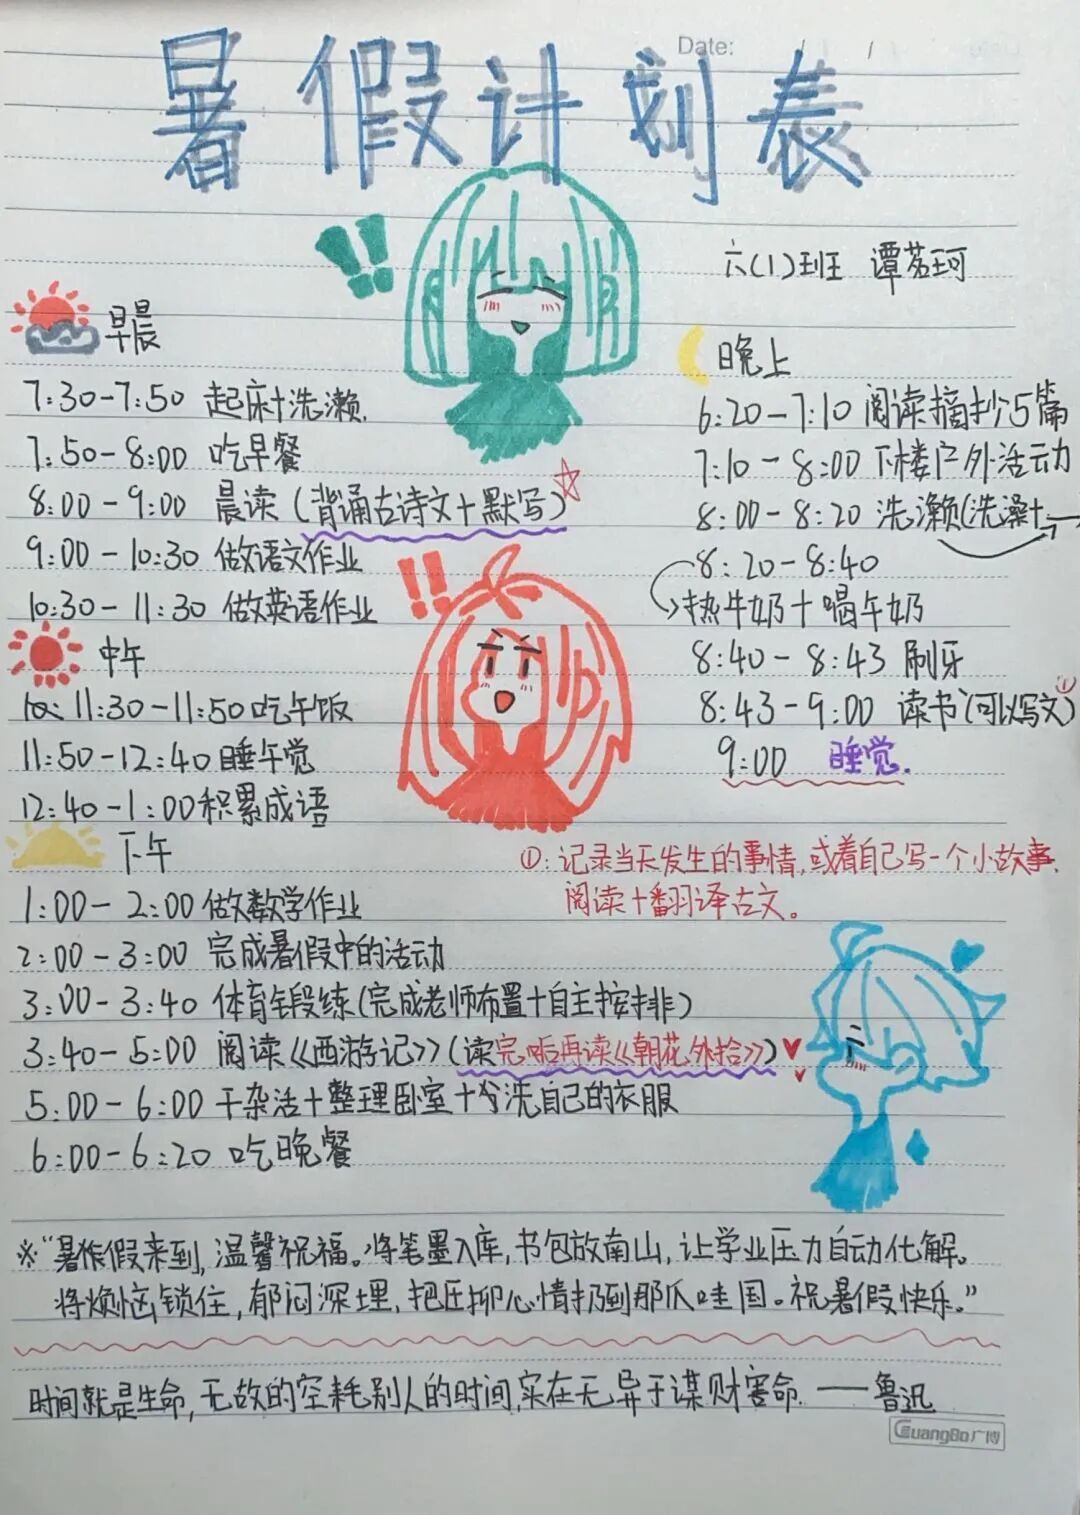 Date: / /
暑假计划表
六(1)班 谭茗珂
早晨
7:30-7:50 起床+洗濑.
7:50-8:00 吃早餐
8:00-9:00 晨读(背诵古诗文+默写)
9:00-10:30 做语文作业
10:30-11:30 做英语作业
中午
11:30-11:50 吃午饭
11:50-12:40 睡午觉
12:40-1:00 积累成语
下午
1:00-2:00 做数学作业
2:00-3:00 完成暑假中的活动
3:00-3:40 体育锻练(完成老师布置+自主按排)
3:40-5:00 阅读《西游记》(读完后再读《朝花夕拾》)
5:00-6:00 干杂活+整理卧室+洗自己的衣服
6:00-6:20 吃晚餐
晚上
6:20-7:10 阅读摘抄5篇
7:10-8:00 下楼户外活动
8:00-8:20 洗濑(洗澡+
8:20-8:40
热牛奶+喝牛奶
8:40-8:43 刷牙
8:43-9:00 读书(可以写文)①
9:00 睡觉.
①:记录当天发生的事情,或着自己写一个小故事.
阅读+翻译古文。
※“暑假来到,温馨祝福。将笔墨入库,书包放南山,让学业压力自动化解。
将烦恼锁住,郁闷深埋,把压抑心情扔到那爪哇国。祝暑假快乐。”
时间就是生命,无故的空耗别人的时间,实在无异于谋财害命.——鲁迅
GuangBo广博